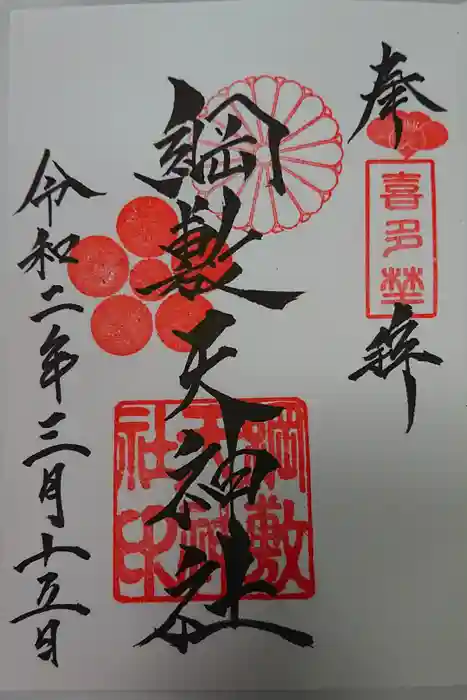 奉拝
喜多埜
綱敷天神社
綱敷天神社印
令和二年三月十五日